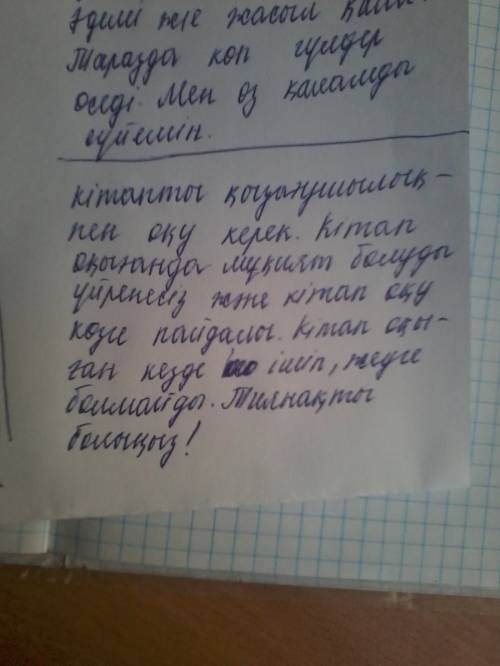 әдемі және жасыл қала.
Таразда көп гүлдер
өседі. Мен өз қаламды
сүйемін.
Кітапты қызығушылық-
пен оқу керек. Кітап
оқығанда мұқият болуды
үйренесіз және кітап оқу
көзге пайдалы. Кітап оқы-
ған кезде ішіп, жеуге
болмайды. Тиянақты
болыңыз!